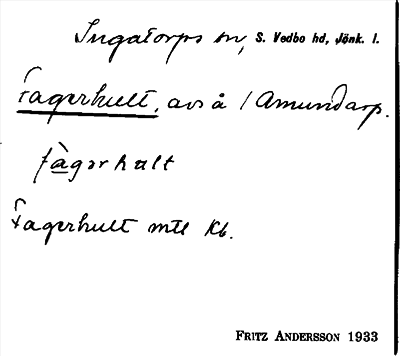 Ingatorps sn, S. Vedbo hd, Jönk. l.
Fagerhult, avs å /Amundarp.
fàgərhalt
Fagerhult mtl Kb.
FRITZ ANDERSSON 1933